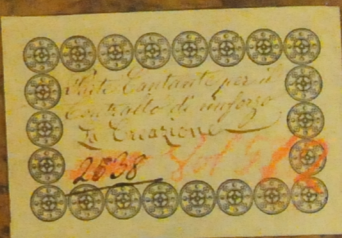 Parte Cantante per il
Contralto di rinforzo
La Creazione
2638